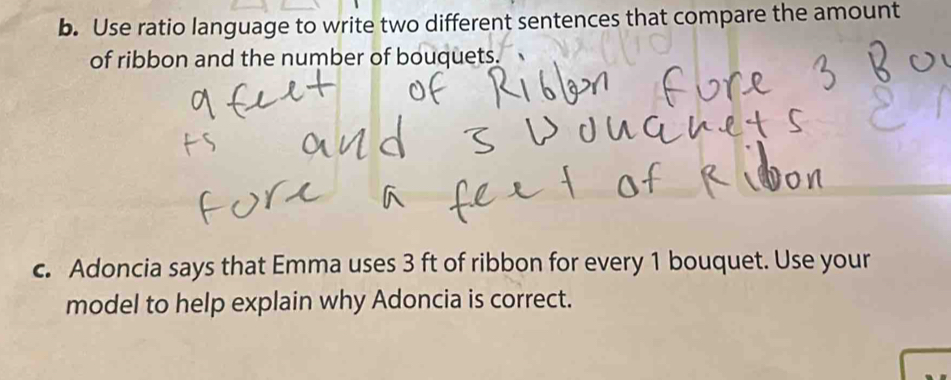 b. Use ratio language to write two different sentences that compare the amount
of ribbon and the number of bouquets.
9 feet of Ribbon fore 3 Bou
ts and 3 bouquets
fore 9 feet of Ribon
c. Adoncia says that Emma uses 3 ft of ribbon for every 1 bouquet. Use your
model to help explain why Adoncia is correct.